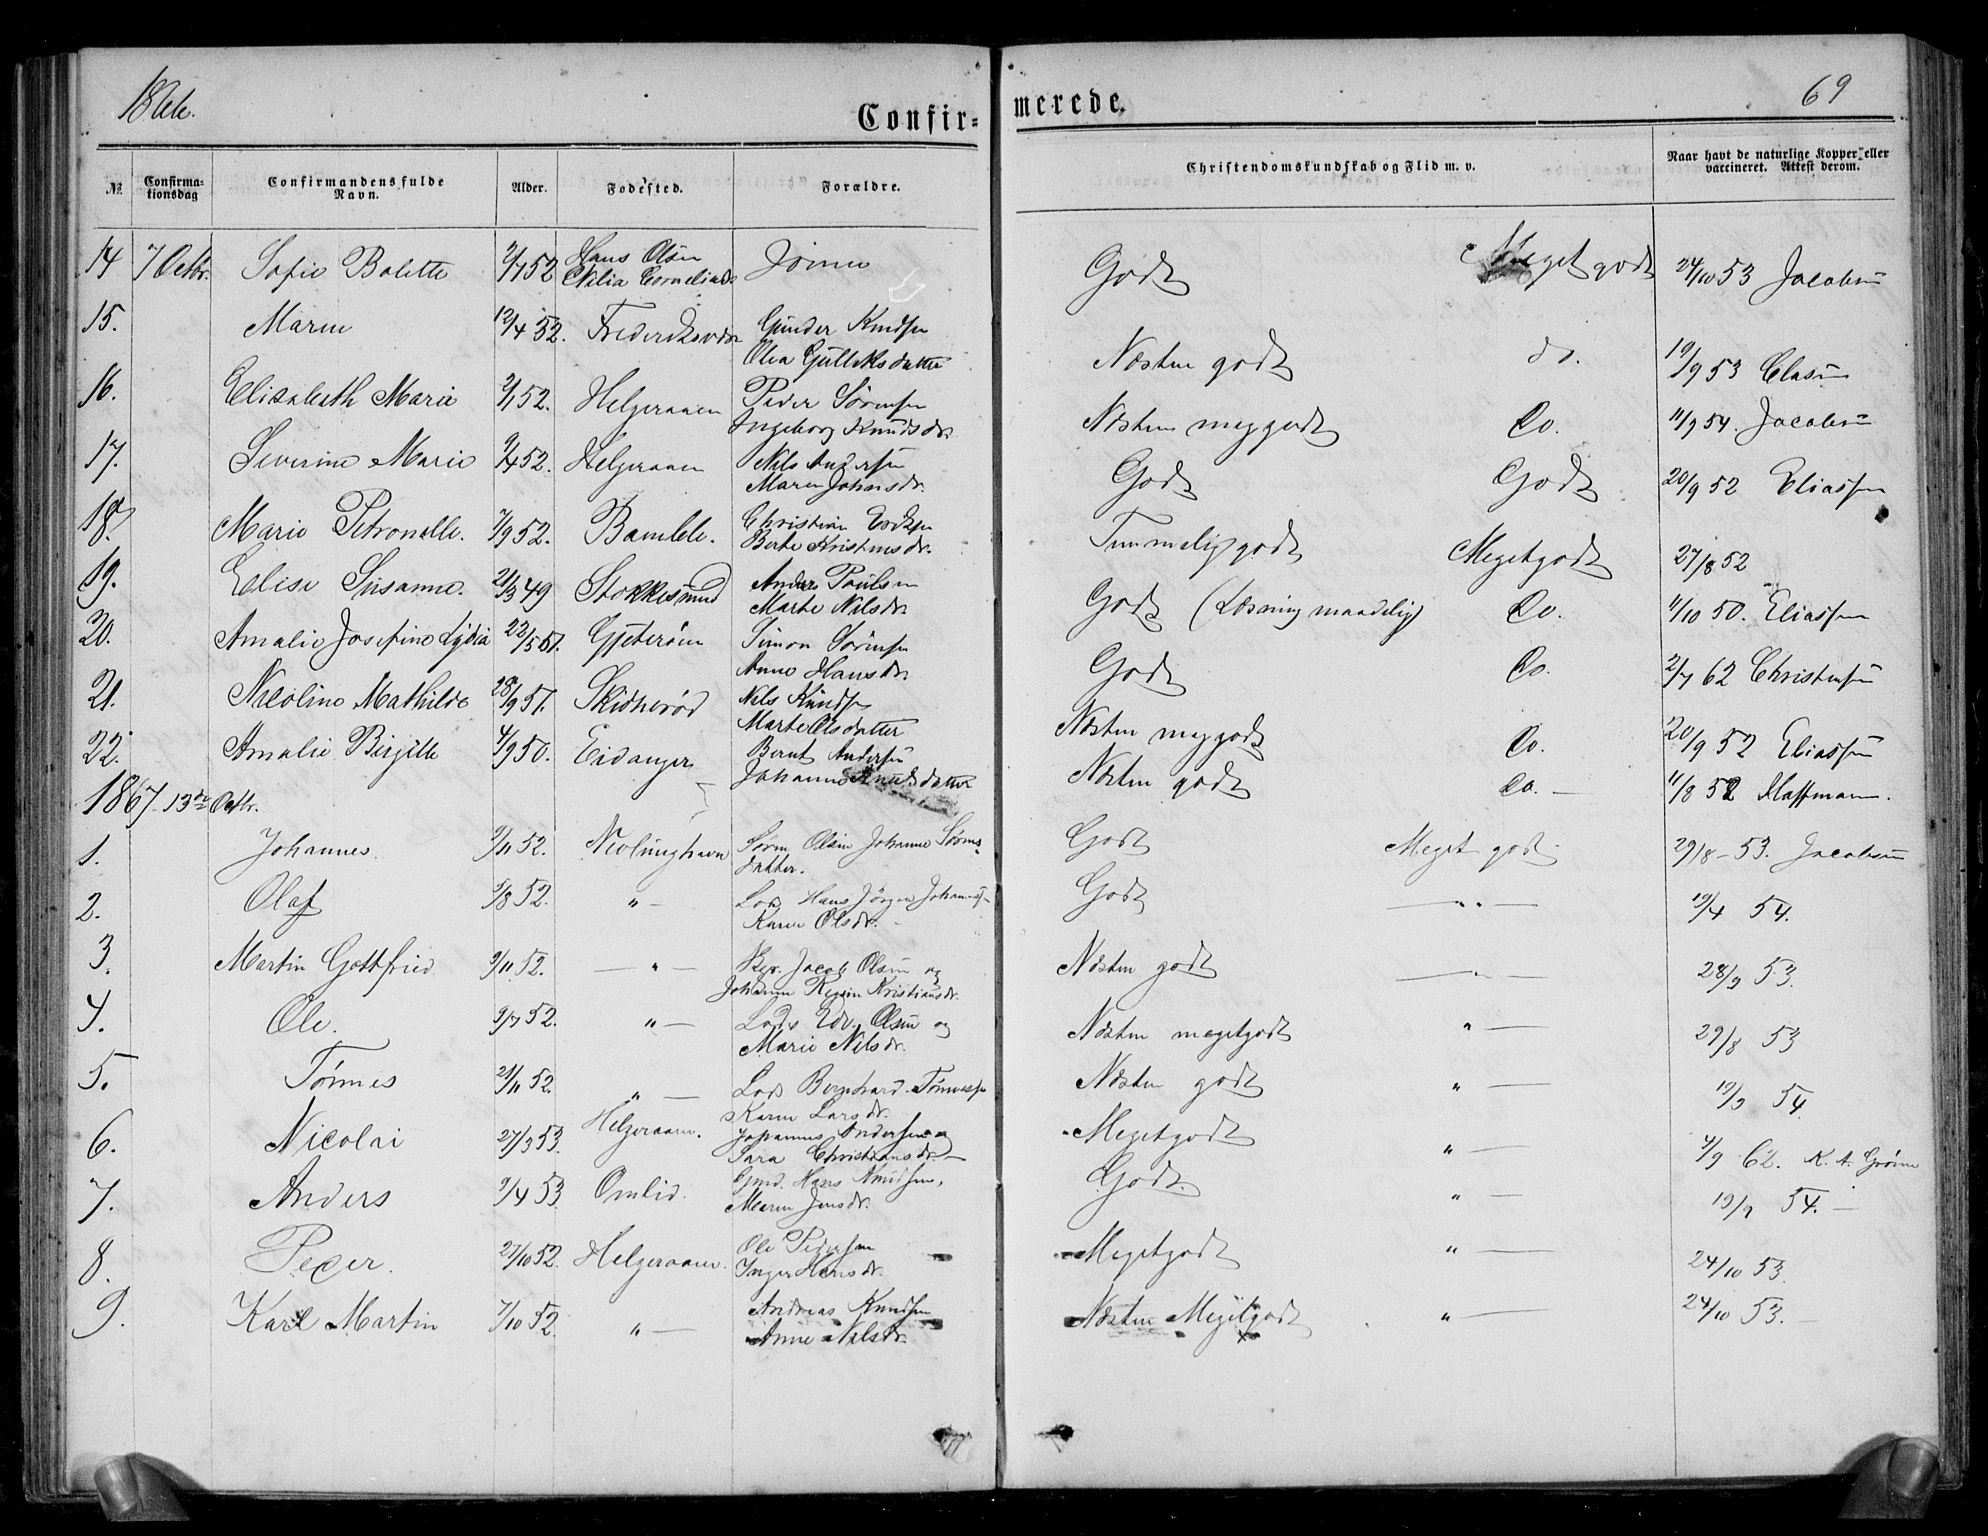 1866.
Confir-
merede.
69
№
Confirma-
tionsdag
Confirmandens fulde
Navn.
Alder.
Fødested.
Forældre.
Christendomskundskab og Flid m. v.
Naar havt de naturlige Kopper eller
vaccineret. Attest derom.
14 7 Octbr. Sofie Bolette 2/7 52 Hans Olsen Jønne Godt Meget godt 24/10 53 Jacobsen
15. Maren 12/4 52. Gunder Knudsen
Olea Gulliksdatter Næsten godt do. 19/9 53
16. Elisabeth Marie 2/1 52. Helgeraaen Peder Sørensen
Ingeborg Knudsdr. Næsten meg godt Do. 11/9 54. Jacobsen
17. Severine Marie 9/4 52. Helgeraaen Nils Andersen
Maren Johnsdr. Godt Godt 20/9 52 Eliassen
18. Marie Petronelle. 7/9 52. Bamble. Christian
Berte Kristensdr. Temmelig godt Meget godt 27/8 52
19. Elise Susanne. 21/3 49 Stokkesund Anders Poulsen
Marte Nilsdr. Godt (Læsning maadelig) Do. 11/10 50. Eliassen
20. Amalie Josefine Lydia 22/5 51. Simon Sørensen
Anne Hansdr. Godt Do. 2/7 62 Christensen
21. Nicoline Mathilde 28/9 51. Nils Knudsen
Marte Olsdatter Næsten meg godt Do. 20/9 52 Eliassen
22. Amalie Birgitte 4/9 50. Eidanger Bernt Andersen
Johanne Knudsdatter Næsten godt Do. — 11/8 52 Hoffmann.
1867. 13de Octbr.
1. Johannes. 9/11 52. Nevlunghavn Søren Olsen Johanne Sørens
datter. Godt Meget godt 29/8 – 53. Jacobsen
2. Olaf 5/8 52. " — Lods Hans Jørgen Johannesen
Karen Olsdr. Godt — " — 19/4 54.
3. Martin Gottfried 9/11 52. — " — Jacob Olsen og
Johanne Kristiansdr. Næsten godt — " — 28/9 53.
4. Ole. 9/7 52. " — Lods Edv. Olsen og
Marie Nilsdr. Næsten meget godt " — 29/8 53
5. Tønnes 21/11 52. " — Lods Bernhard Tønnessen
Karen Larsdr. Næsten godt " — 19/9 54
6. Nicolai 27/3 53. Helgeraaen. Johannes Andersen og
Sara Christiansdr. — Meget godt " — 4/9 62.
7. Anders 9/4 53 Omlid. Gmd. Hans Knudsen,
Maren Jensdr. Godt. " — 19/9 54. —
8. Peder. 27/10 52. Helgeraaen. Ole Pedersen
Inger Hansdr. Meget godt " — 24/10 53.
9. Karl Martin 7/10 52. " — Andreas Knudsen
Anne Nilsdr. Næsten Meget godt " — 24/10 53. —